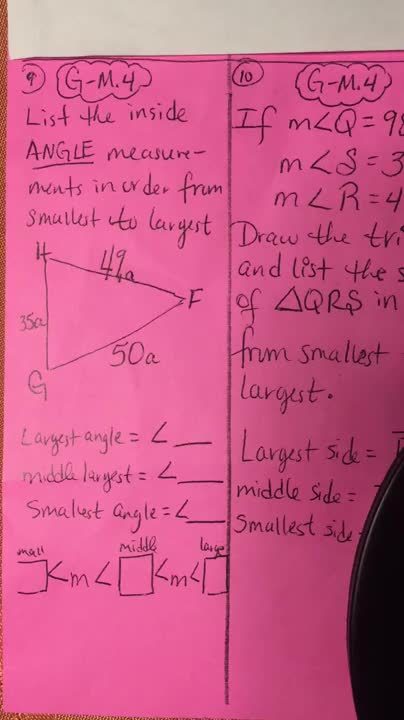 9 G-M.4
List the inside
ANGLE measure-
ments in order from
smallest to largest
H
49a
F
35a
50a
G
Largest angle = ∠ __
middle largest = ∠ __
Smallest angle = ∠ __
small middle large
< m < < m <
10 G-M.4
If m∠Q = 98
m∠S = 3
m∠R = 4
Draw the tri
and list the s
of △QRS in
from smallest
largest.
Largest side =
middle side =
smallest side